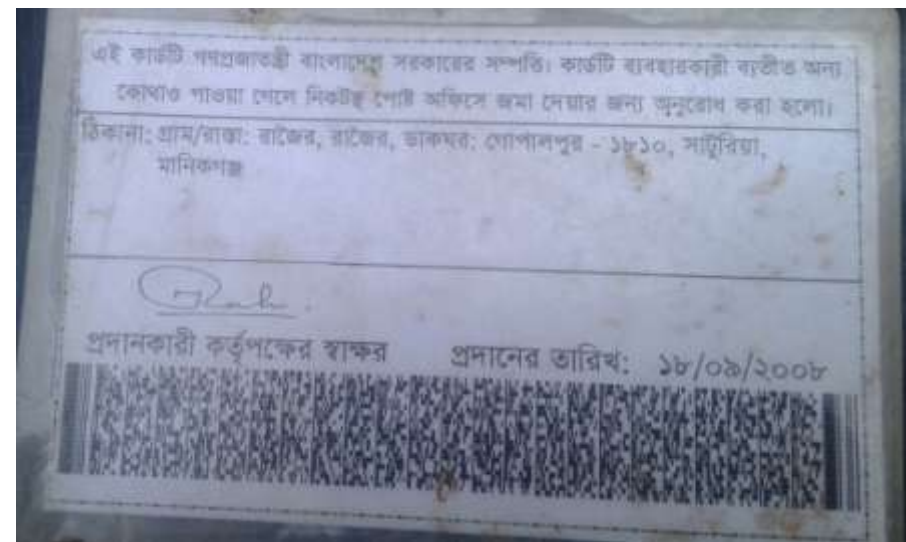 এই কার্ডটি গণপ্রজাতন্ত্রী বাংলাদেশ সরকারের সম্পত্তি। কার্ডটি ব্যবহারকারী ব্যতীত অন্য
কোথাও পাওয়া গেলে নিকটস্থ পোষ্ট অফিসে জমা দেয়ার জন্য অনুরোধ করা হলো।
ঠিকানা: গ্রাম/রাস্তা: রাজৈর, রাজৈর, ডাকঘর: গোপালপুর - ১৮১০, সাটুরিয়া,
মানিকগঞ্জ
প্রদানকারী কর্তৃপক্ষের স্বাক্ষর প্রদানের তারিখ: ১৮/০৯/২০০৮